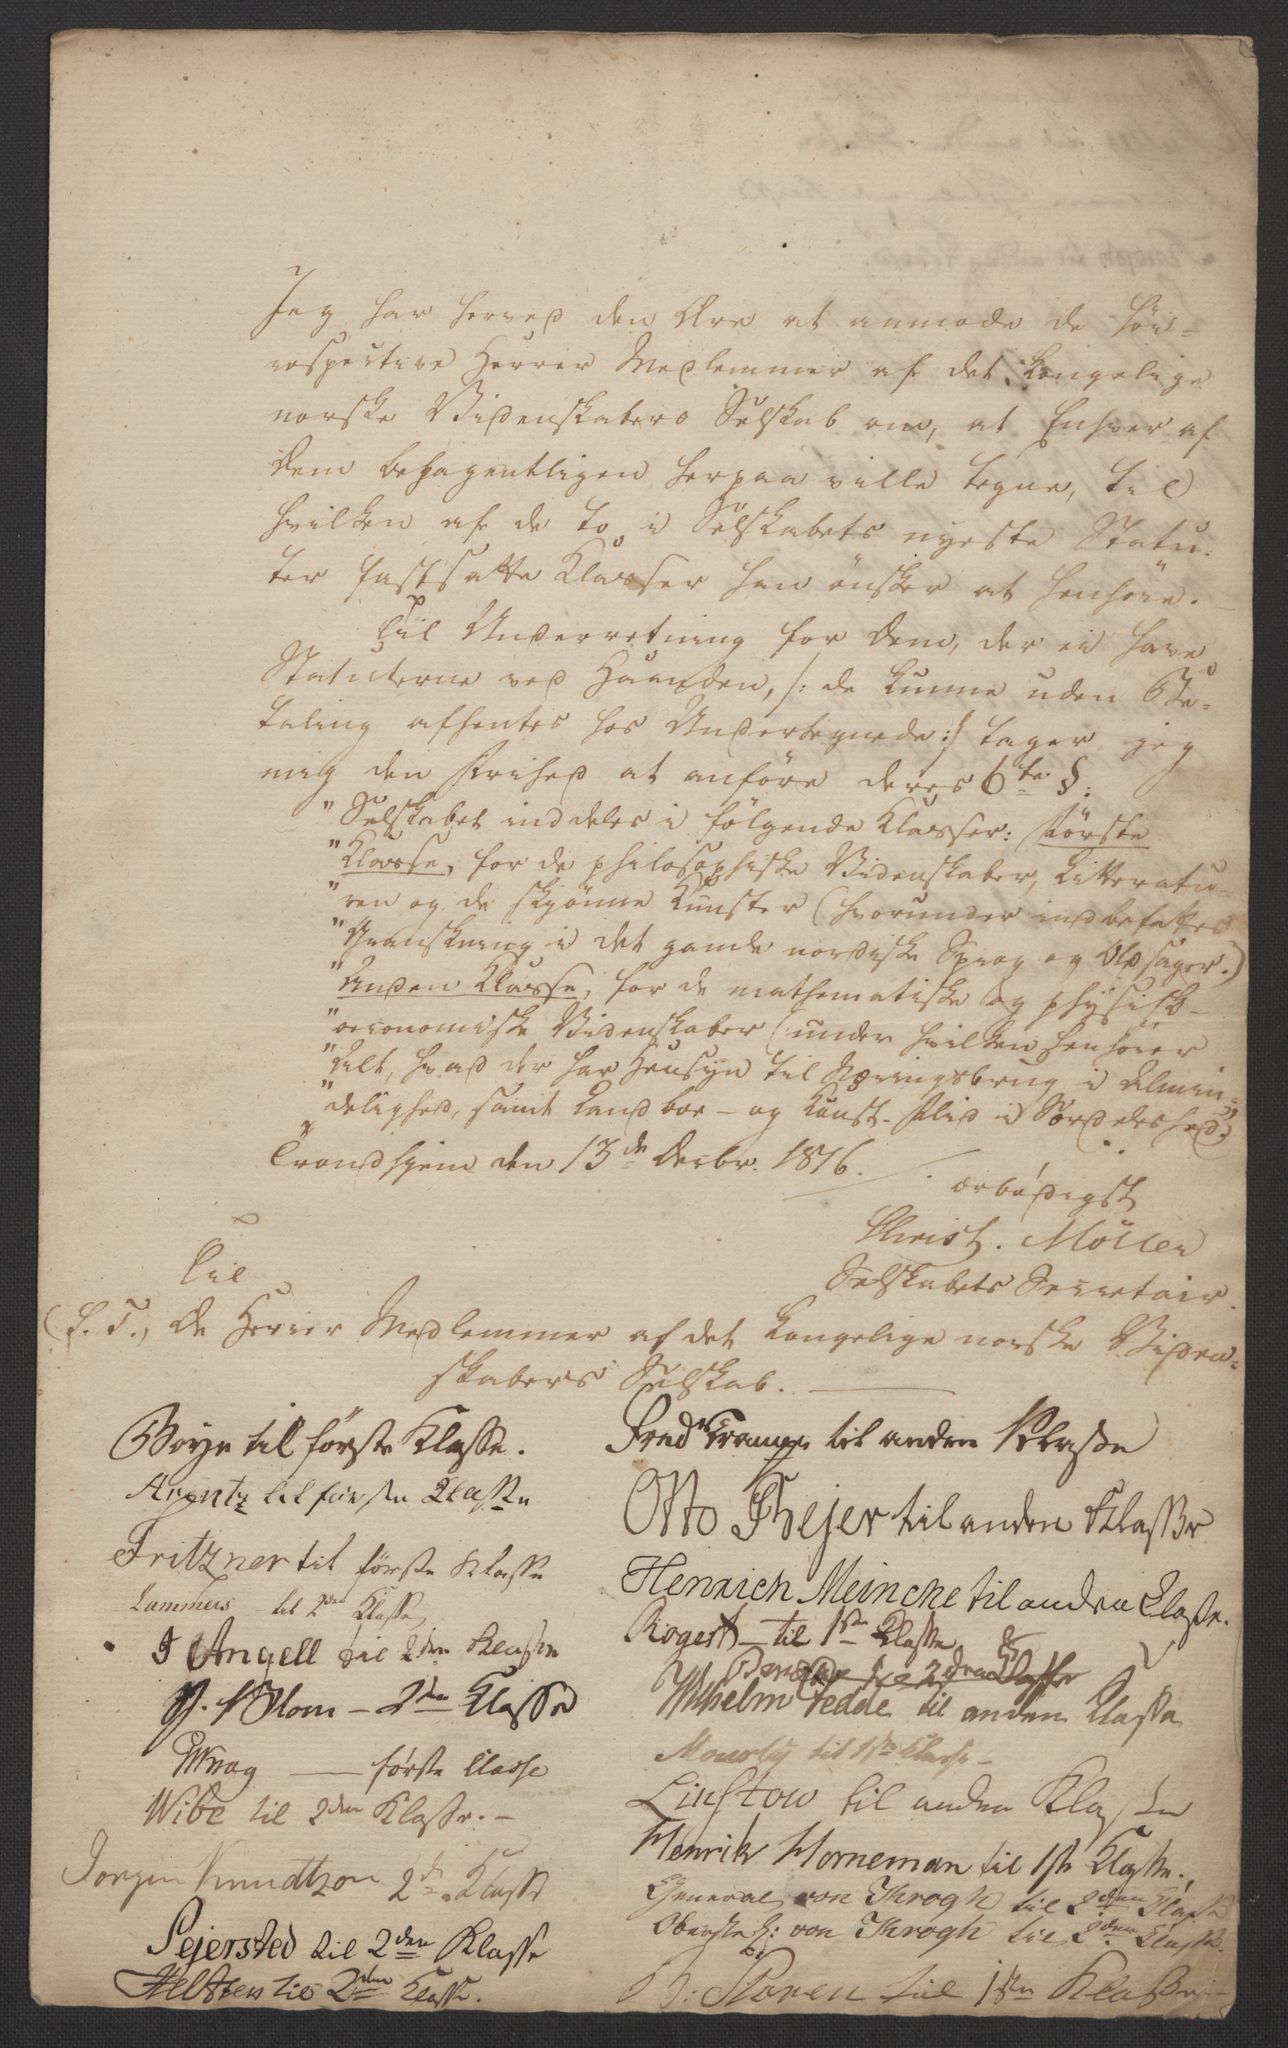 Jeg har herved den Ære at anmode de höi-
respective Herrer Medlemmer af det Kongelige
norske Videnskabers Selskab om, at Enhver af
Dem behagentligen herpaa ville tegne, til
hvilken af de to i Selskabets nyeste Statu-
ter fastsatte Klasser han önsker at henhöre.
Til Underretning for Dem, der ei have
Statuterne ved Haanden, /: de kunne uden Be-
taling afhentes hos Undertegnede :/ tager jeg
mig den Frihed at anföre deres 6te §:
"Selskabet inddeles i fölgende Klasser: Förste
"Klasse, for de philosophiske Videnskaber, Litteratu-
"ren og de skjönne Kunster (hvorunder indbefattes
"Granskning i det gamle nordiske Sprog og Oldsager.)
"Anden Klasse, for de mathematiske og physisk-
"oeconomiske Videnskaber (under hvilken henhörer
"Alt, hvad der har Hensyn til Næringsbrug i Almin-
"delighed, samt Landboe- og Kunst-Flid i Særdeleshed.)"
Trondhjem den 13de Decbr. 1816.
ærbödigst
Christ. Möller
Selskabets Secretair.
Til
(S. T.) De Herrer Medlemmer af det Kongelige norske Viden-
skabers Selskab.
Boye til förste Klasse.
Arentz til förste Classe
Fritzner til förste Klasse
Lammers til 2den Klasse
J Angell til 2den Klasse
P. S Blom – 2den Klasse
Krag — förste Classe
Wibe til 2den Klasse. –
Jørgen Knudtzon 2de Klasse
Sejersted til 2den Klasse
Helsten til 2den Klasse.
Fredr Tramp til anden Klasse
Otto Thejer til anden Klasse
Henrich Meincke til anden Classe.
Rogert – til 1ste Klasse
til 2den Classe
Wilhelm Tedde til anden Klasse
Mourly til 1ste Classe –
Linstow til anden Klasse
Henrik Horneman til 1ste Klasse.
General von Krogh til 2den Klasse
Oberstl: von Krogh til 2den Klasse.
B: Støren til 1ste Klasse